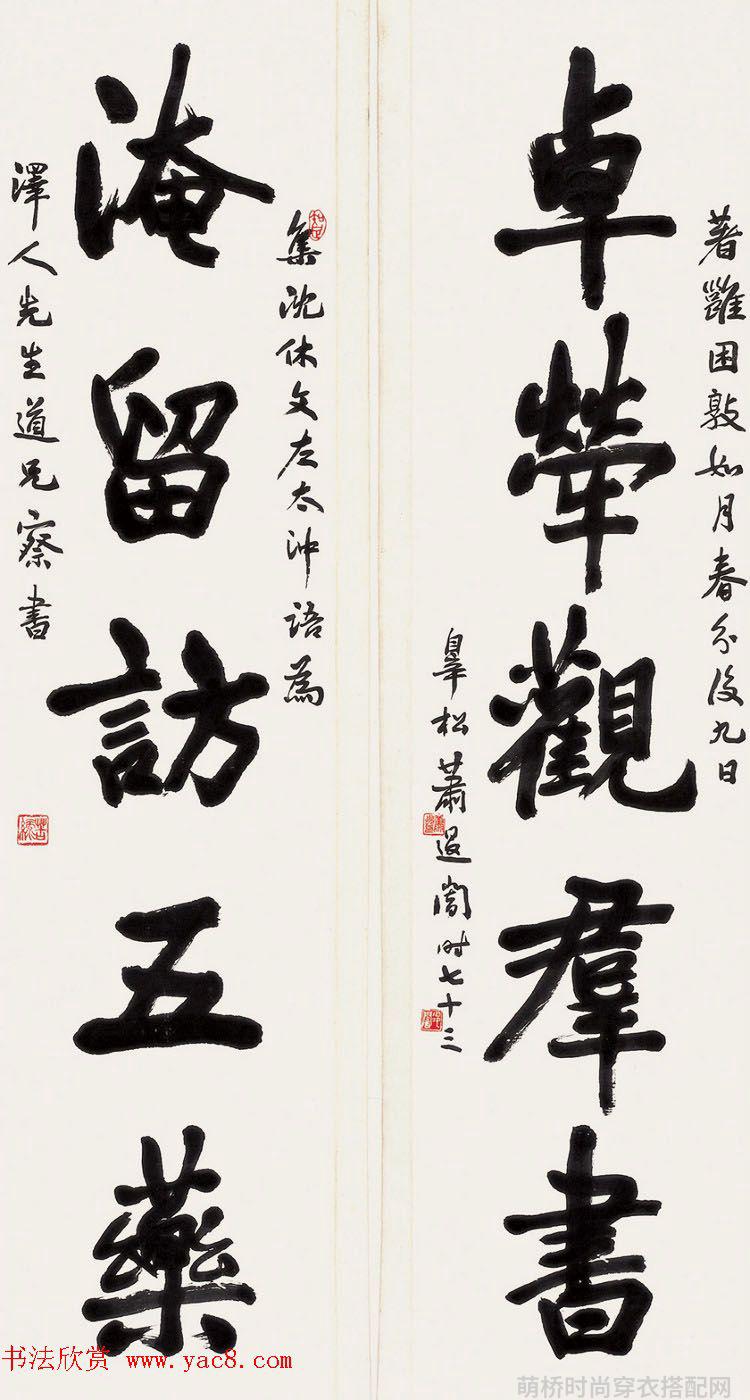 著雝困敦如月春分後九日
卓犖觀羣書
皋松蕭退闇时七十三
集沈休文左太沖語為
淹留訪五藥
澤人先生道兄察書
书法欣赏 www.yac8.com
萌桥时尚穿衣搭配网